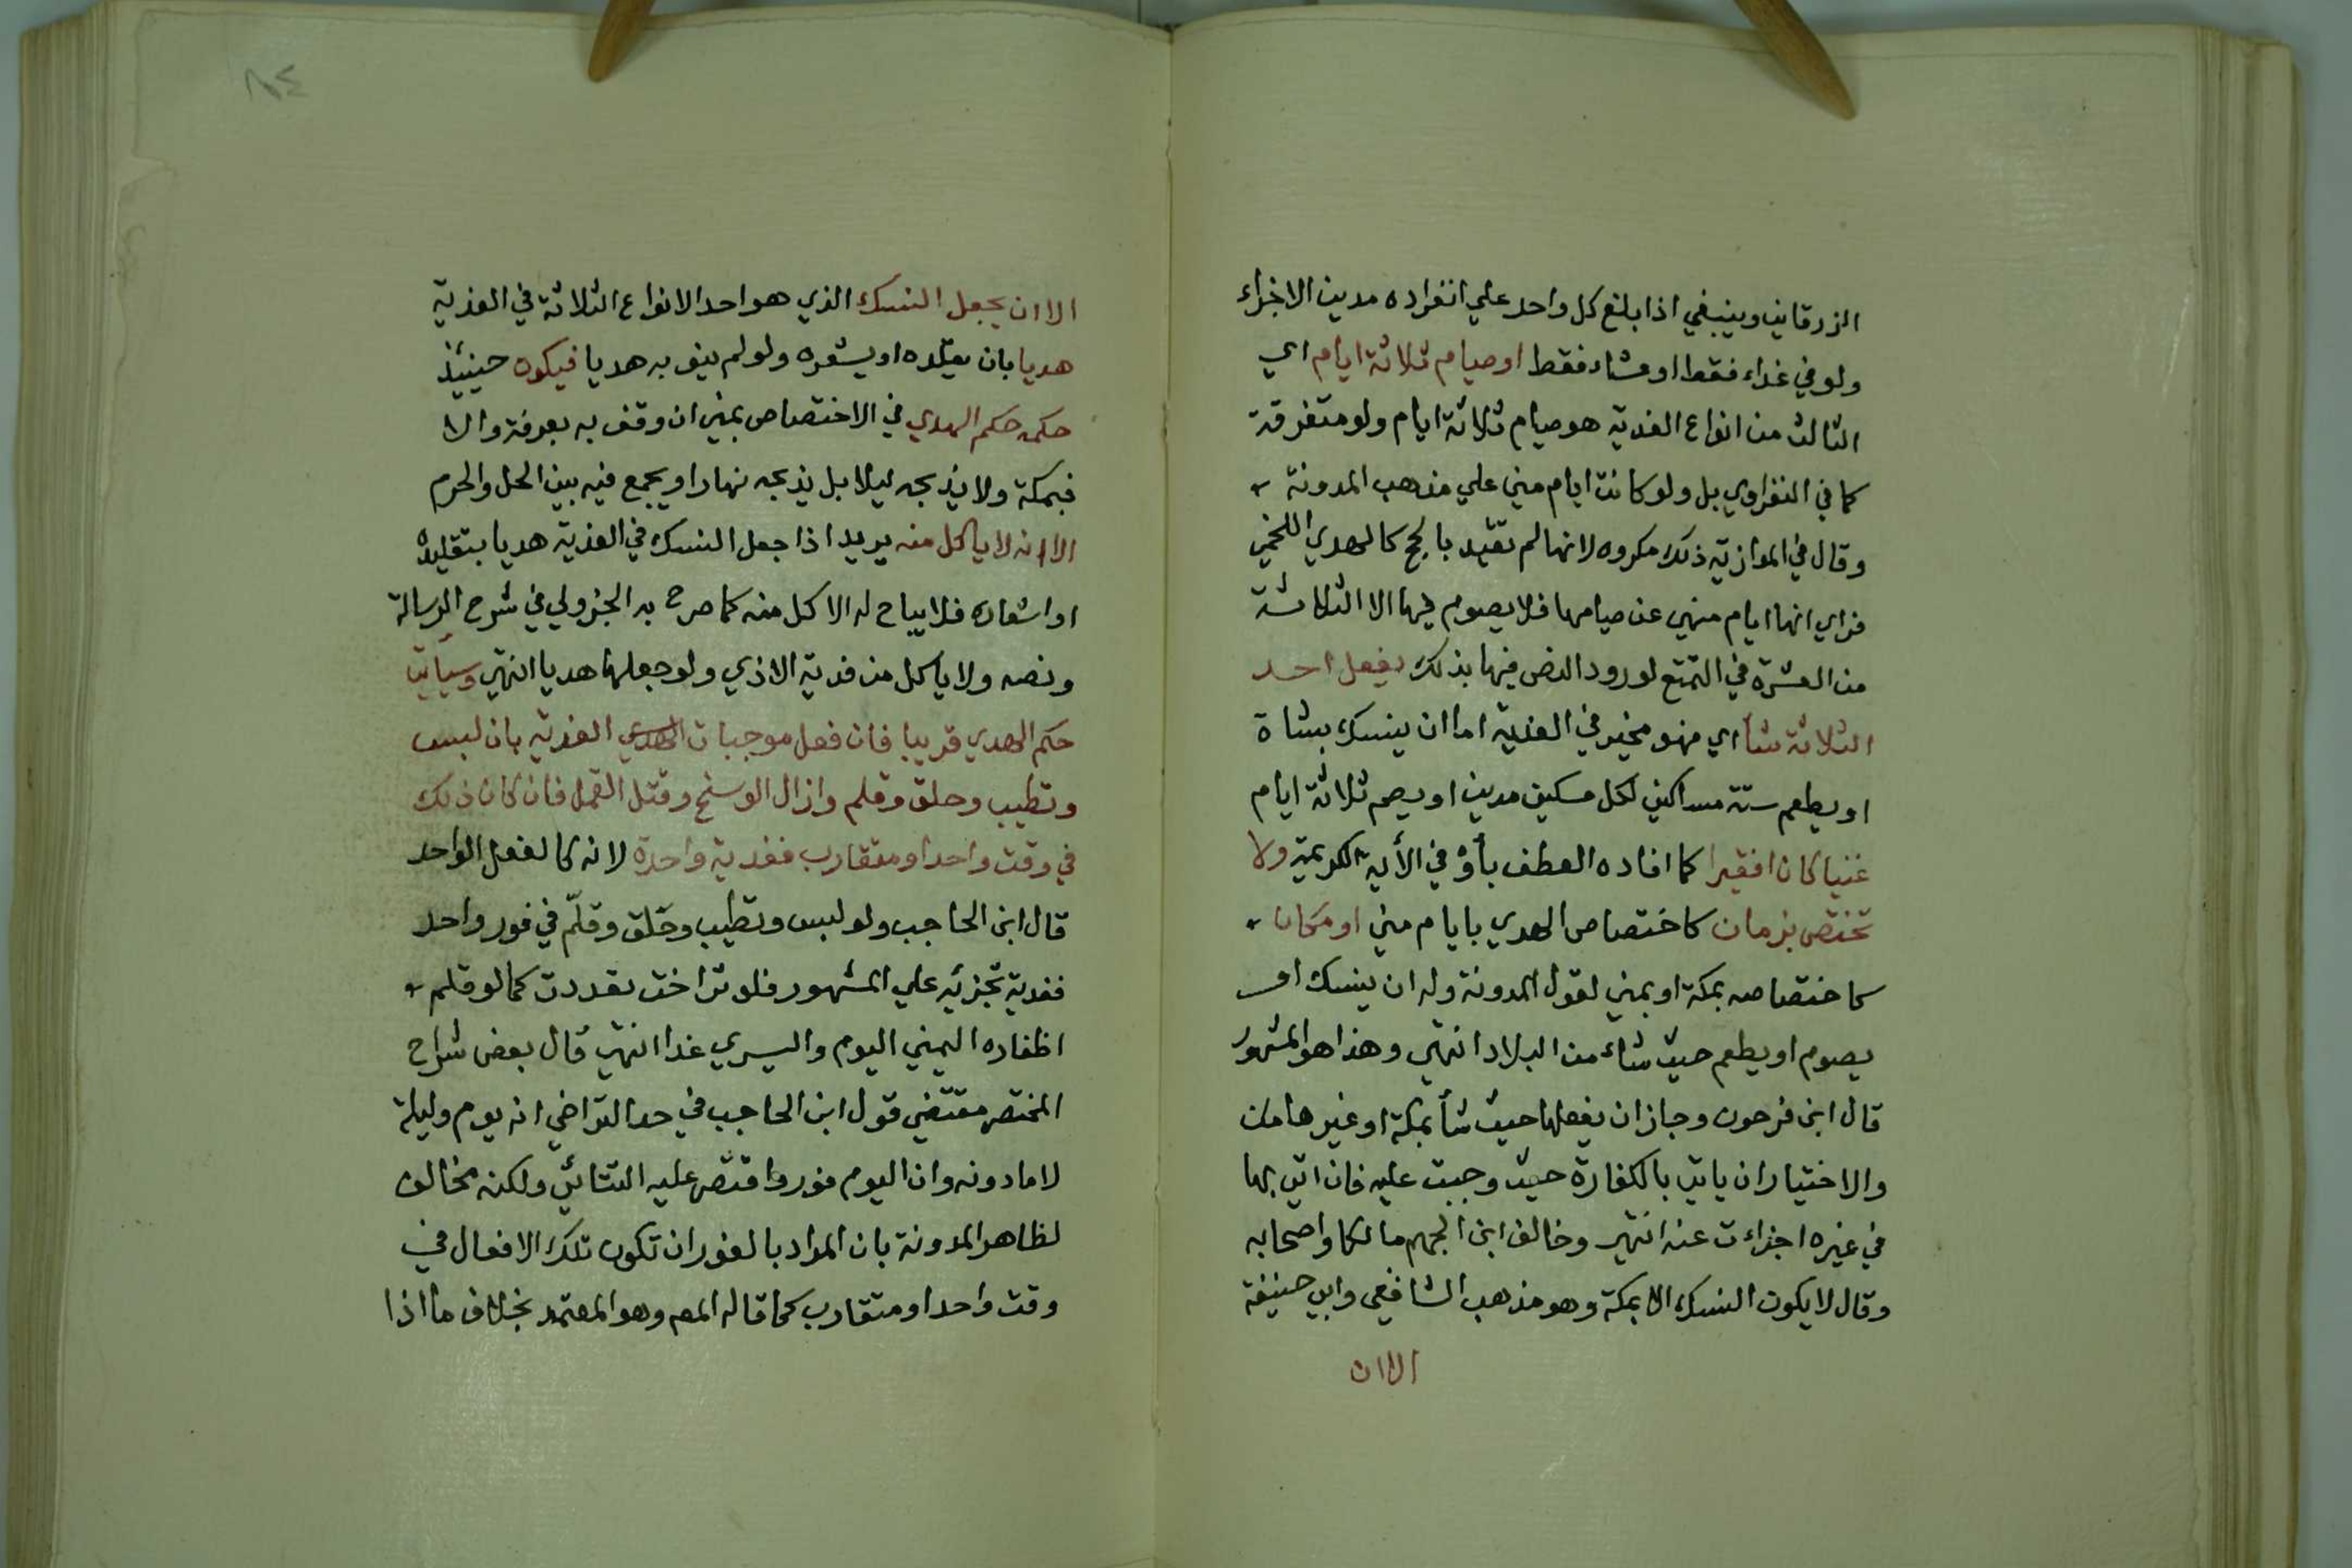 الزرقاني وينبغي اذا بلغ كل واحد علي انفراده مدين الاجزاء
ولو في غداء فقط او عشاء فقط او صيام ثلاثة ايام اي
الثالث من انواع الفدية هو صيام ثلاثة ايام ولو متفرقة
كما في النفراوي بل ولو كانت ايام مني علي مذهب المدونة
وقال في الموازية ذلك مكروه لانها لم تقيد بالحج كالهدي اللخمي
فراي انها ايام منهي عن صيامها فلا يصوم فيها الا الثلاثة
من العشرة في التمتع لورود النص فيها بذلك يفعل احد
الثلاثة شأ اي فهو مخير في الفدية اما ان ينسك بشاة
او يطعم ستة مساكين لكل مسكين مدين او يصم ثلاثة ايام
غنيا كان افقيرا كما افاده العطف بأو في الأية الكريمة ولا
تختص بزمان كاختصاص الهدي بايام مني او مكان
كاختصاصه بمكة او بمني لقول المدونة وله ان ينسك او
يصوم او يطعم حيث شاء من البلاد انتهي وهذا هو المشهور
قال ابن فرحون وجاز ان يفعلها حيث شأ بمكة او غيرها من
والاختيار ان ياتي بالكفارة حيث وجبت عليه فان اتي بها
في غيره اجزاءت عنه انتهي وخالف ابن الجهم مالكا واصحابه
وقال لا يكون النسك الا بمكة وهو مذهب الشافعي وابي حنيفة
الا ان
١٨٤
الا ان يجعل النسك الذي هو احد الانواع الثلاثة في الفدية
هديا بان يقلده او يشعره ولو لم ينو به هديا فيكون حينئذ
حكمه حكم الهدي في الاختصاص بمني ان وقف به بعرفة والا
فبمكة ولا يذبحه ليلا بل يذبحه نهارا ويجمع فيه بين الحل والحرم
الا انه لا ياكل منه يريد اذا جعل النسك في الفدية هديا بتقليده
او اشعاره فلا يباح له الاكل منه كما صرح به الجزولي في شرح الرسالة
ونصه ولا ياكل من فدية الاذي ولو جعلها هديا انتهي وسيأتي
حكم الهدي قريبا فان فعل موجبات الهدي الفدية بان لبس
وتطيب وحلق وقلم وازال الوسخ وقتل القمل فان كان ذلك
في وقت واحد او متقارب ففدية واحدة لانه كالفعل الواحد
قال ابن الحاجب ولو لبس وتطيب وحَلق وقلّم في فور واحد
ففدية تجزئه علي المشهور فلو تراخت تعددت كما لو قلم
اظفاره اليمني اليوم واليسري غدا انتهي قال بعض شراح
المختصر مقتضي قول ابن الحاجب في حد التراخي انه يوم وليلة
لا ما دونه وان اليوم فور واقتصر عليه التتائي ولكنه مخالف
لظاهر المدونة بان المراد بالفور ان تكون تلك الافعال في
وقت واحد او متقارب كما قاله المص وهو المعتمد بخلاف ما اذا